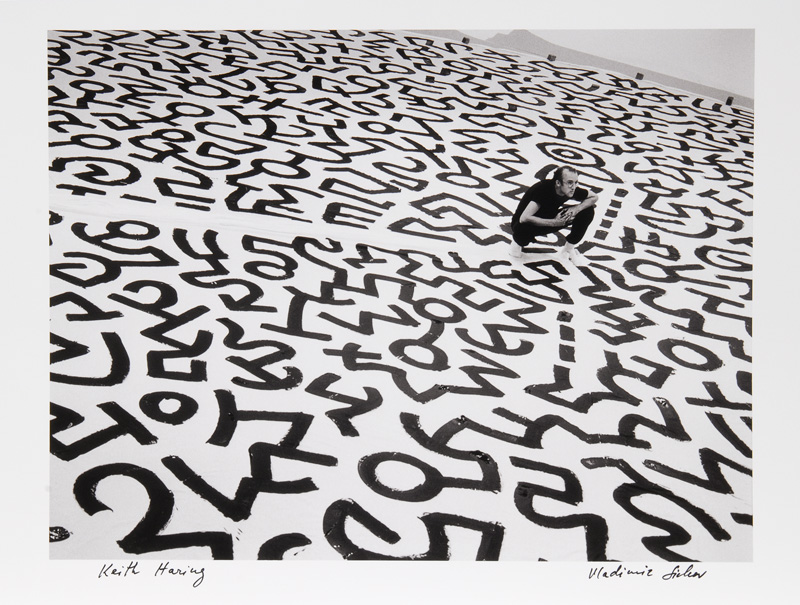 Keith Haring Vladimir Sichov